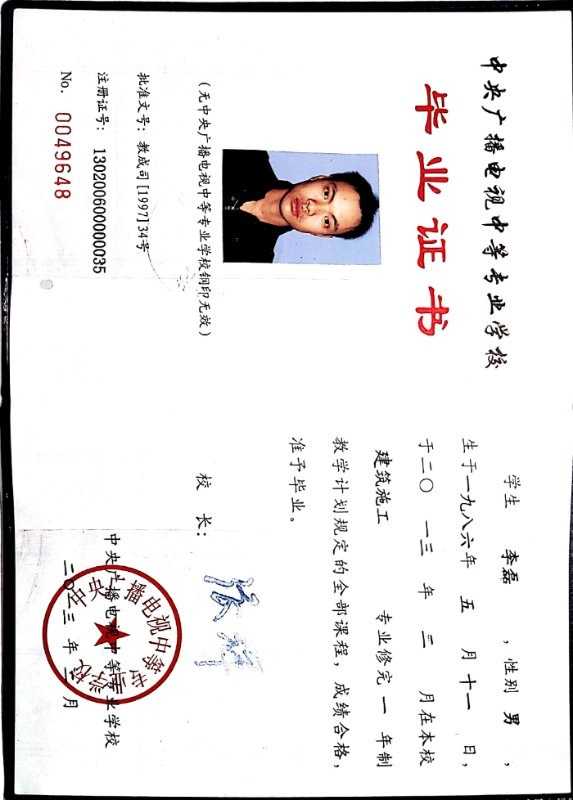 中央广播电视中等专业学校
毕业证书
（无中央广播电视中等专业学校钢印无效）
批准文号：教成司[1997]34号
注册证号：130200600000035
No. 0049648
学生 李磊 ，性别 男 ，
生于一九八六年 五 月 十一 日，
于二〇一三 年 三 月在本校
建筑施工 专业修完 一 年制
教学计划规定的全部课程，成绩合格，
准予毕业。
校 长：
中央广播电视中等专业学校
二〇一三 年 月
中央广播电视中等专业学校